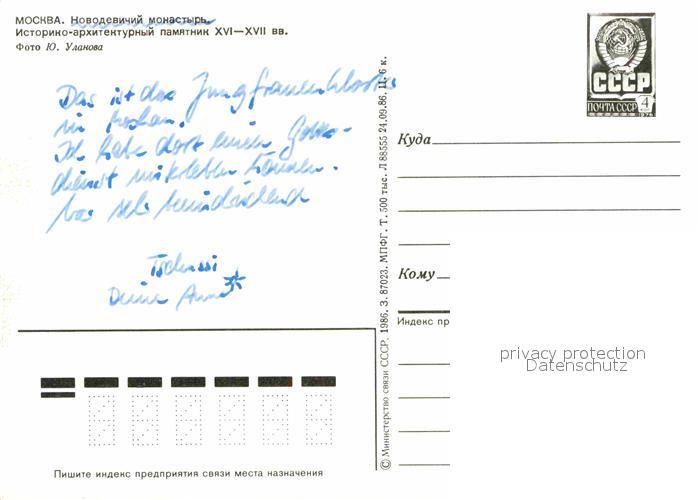 МОСКВА. Новодевичий монастырь.
Историко-архитектурный памятник XVI—XVII вв.
Фото Ю. Уланова
Das ist das Jungfrauenkloster
in Moskau.
Ich habe dort einen Gottes-
dienst miterleben können.
War sehr beeindruckend
Tschussi
Deine Anna
© Министерство связи СССР, 1986. З. 87023. МПФГ. Т. 500 тыс. Л 88555 24.09.86. Ц. 6 к.
СССР
ПОЧТА СССР
4
1976
Куда
Кому
Индекс пр
privacy protection
Datenschutz
Пишите индекс предприятия связи места назначения